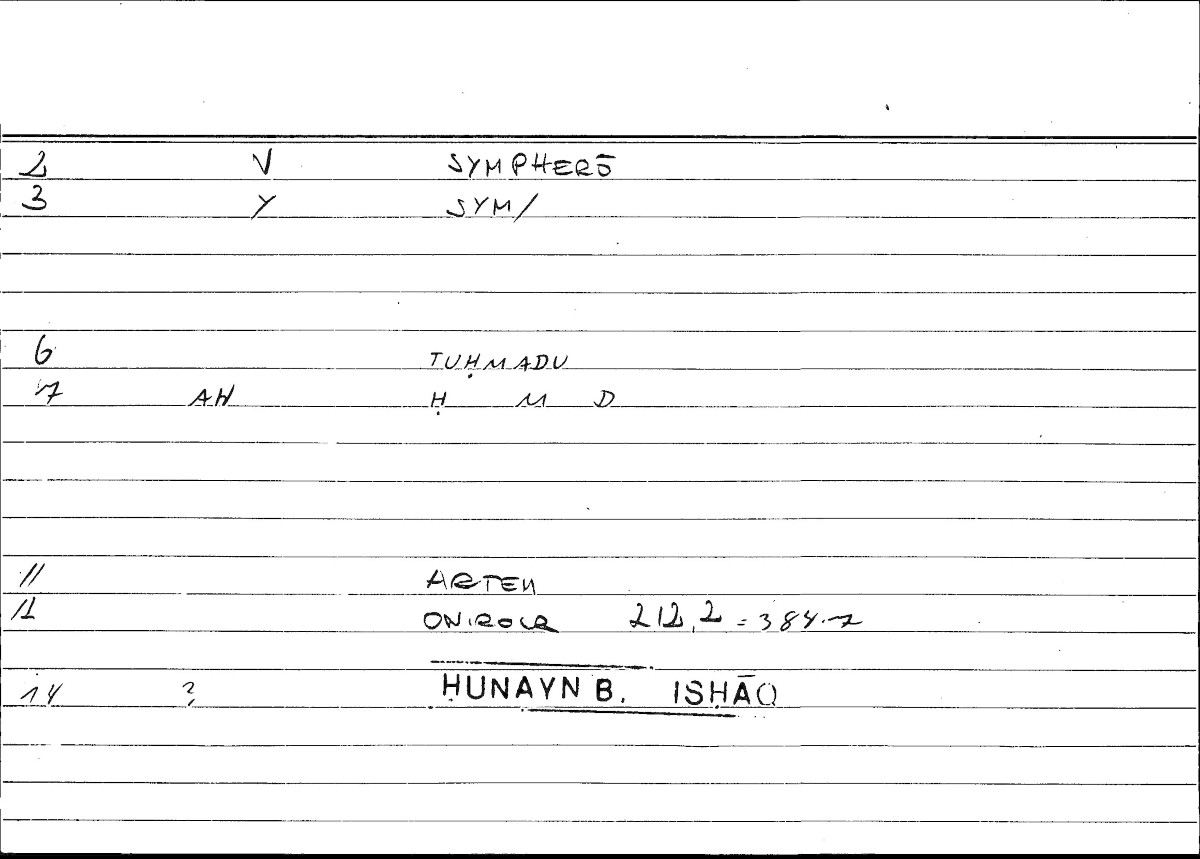 2 V SYMPHERŌ
3 Y SYM/
6 TUḤMADU
7 AH Ḥ M D
11 ARTEM
12 ONIROCR 212,2 = 384.7
14 ? ḤUNAYN B. ISḤĀQ